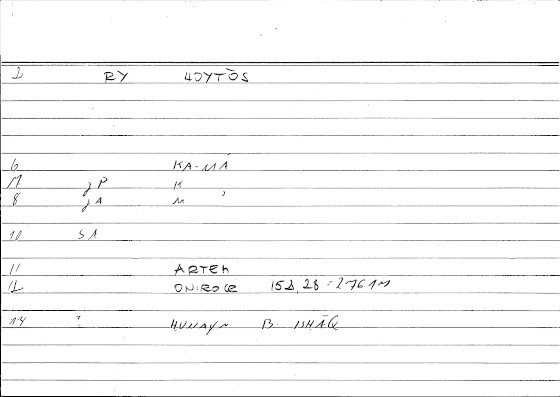 2 RY 4OYTÒS
6 KA-MĀ
7 gP K
8 gA M
10 SA
11 ARTEM
12 ONIROCR 152, 28 = 276 17
14 ? HUNAYN B. ISHĀQ